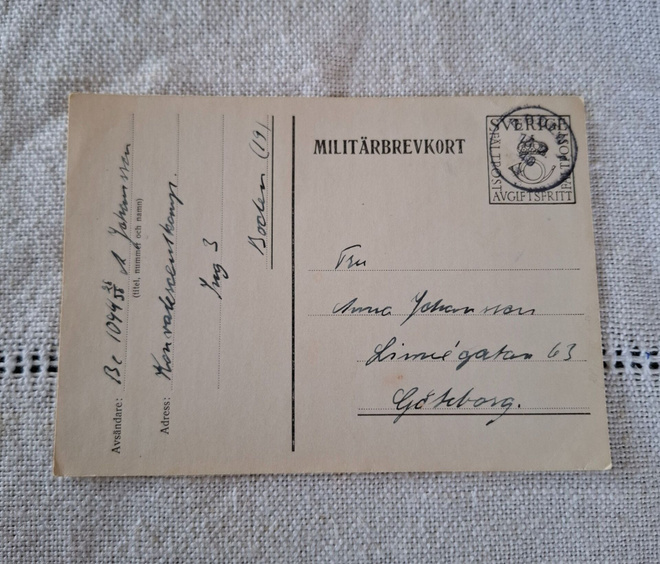 MILITÄRBREVKORT
SVERIGE
FÄLTPOST
AVGIFTSFRITT
Fru
Anna Johansson
Linnégatan 63
Göteborg.
Avsändare: Bc 1044 A Johansson
(titel, nummer och namn)
Adress: Konvalescentkomp.
Ing 3
Boden (19)